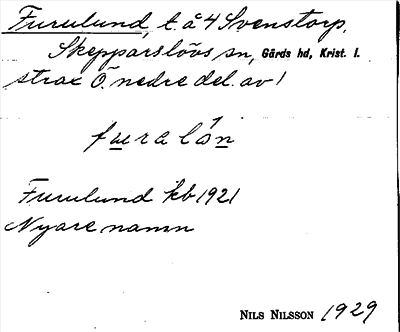 Furulund, t. å 4 Svenstorp,
Skepparslövs sn, Gärds hd, Krist. l.
strax Ö. nedre del. av 1
furalán
Furulund kb 1921
Nyare namn
NILS NILSSON 1929